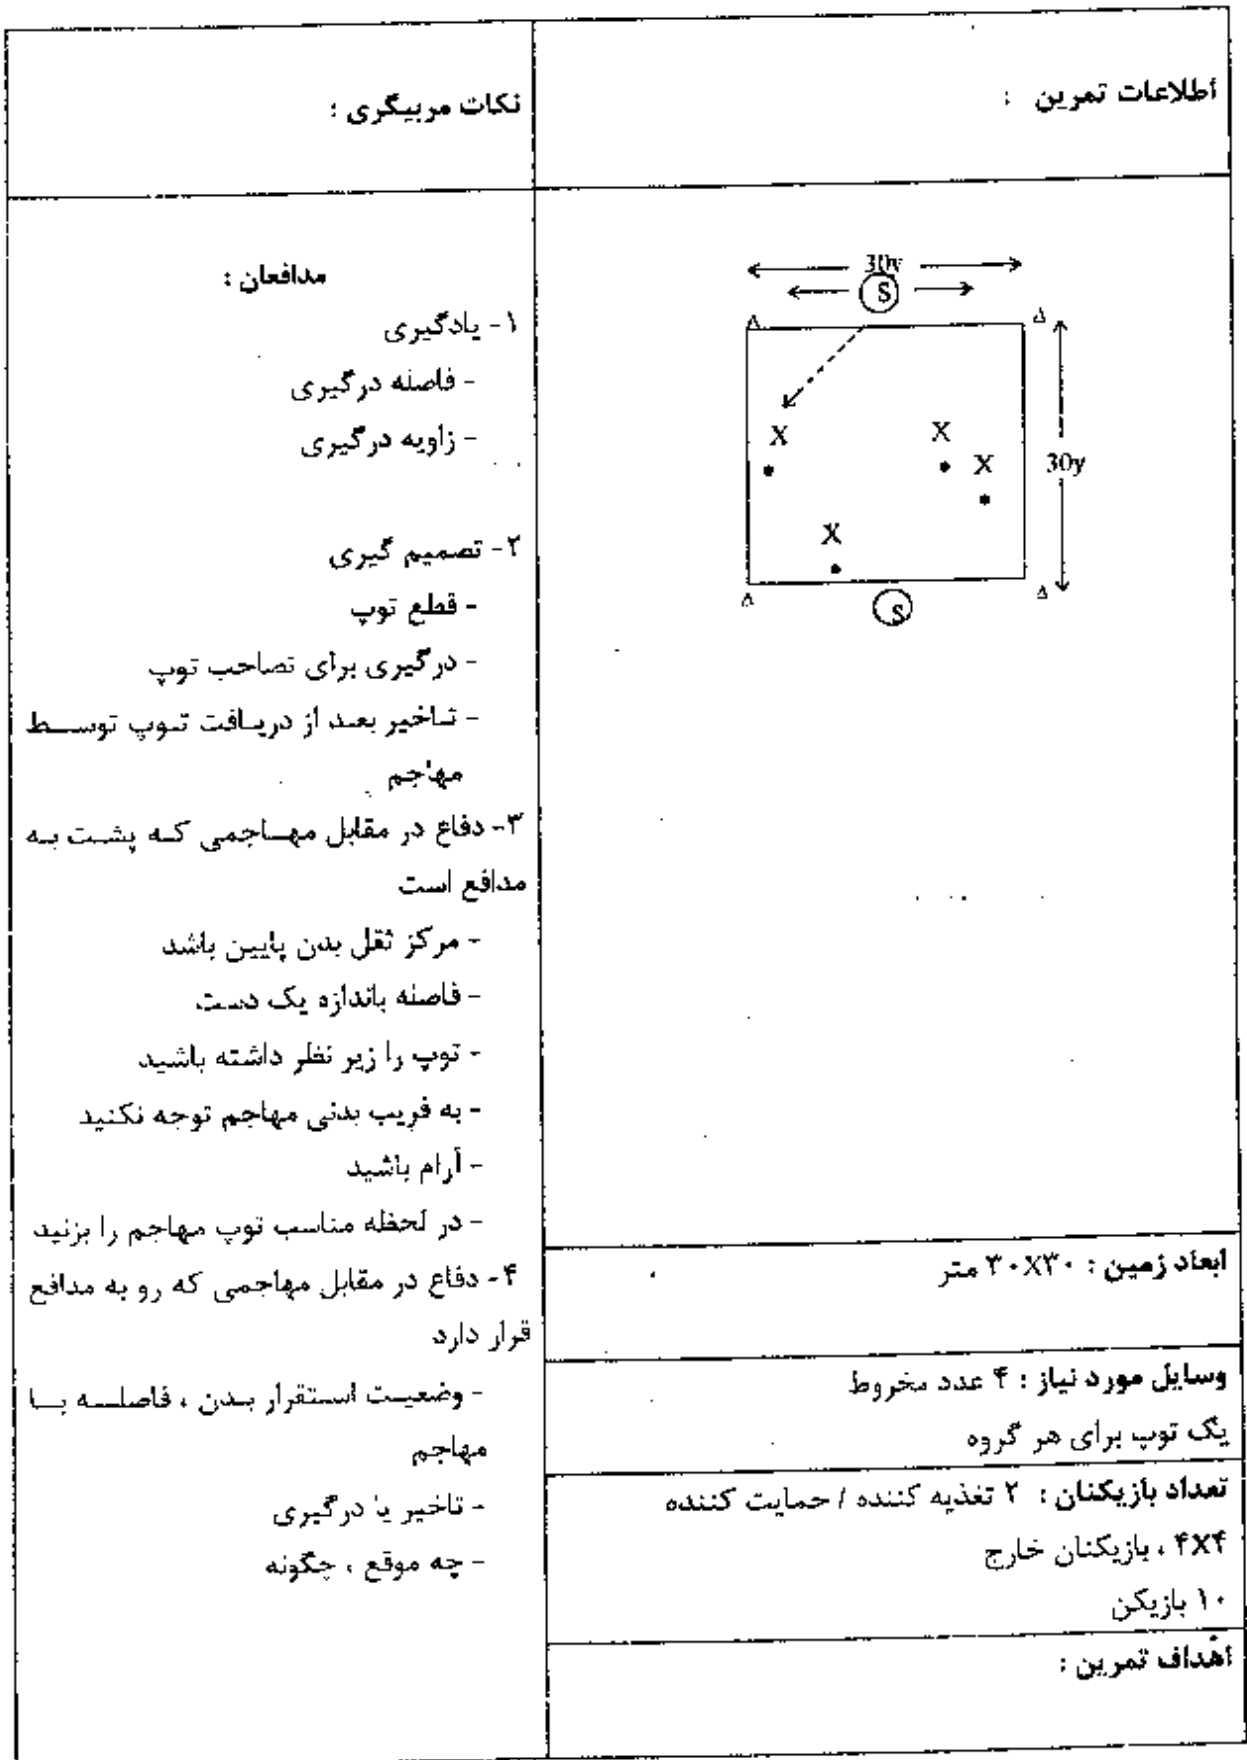 اطلاعات تمرین :
30y
S
X
X
X
30y
X
S
ابعاد زمین : ۳۰X۳۰ متر
وسایل مورد نیاز : ۴ عدد مخروط
یک توپ برای هر گروه
تعداد بازیکنان : ۲ تغذیه کننده / حمایت کننده
۴X۴ ، بازیکنان خارج
۱۰ بازیکن
اهداف تمرین :
نکات مربیگری :
مدافعان :
۱- یادگیری
- فاصله درگیری
- زاویه درگیری
۲- تصمیم گیری
- قطع توپ
- درگیری برای تصاحب توپ
- تاخیر بعد از دریافت توپ توسط
مهاجم
۳- دفاع در مقابل مهاجمی که پشت به
مدافع است
- مرکز ثقل بدن پایین باشد
- فاصله باندازه یک دست
- توپ را زیر نظر داشته باشید
- به فریب بدنی مهاجم توجه نکنید
- آرام باشید
- در لحظه مناسب توپ مهاجم را بزنید
۴- دفاع در مقابل مهاجمی که رو به مدافع
قرار دارد
- وضعیت استقرار بدن ، فاصله با
مهاجم
- تاخیر یا درگیری
- چه موقع ، چگونه